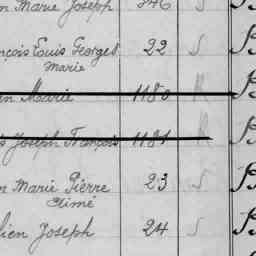 n Marie Joseph 346 S
nçois Louis Georges 22 S
Marie
en Marie 1180 R
s Joseph François 1181 R
n Marie Pierre 23 S
Aimé
lien Joseph 24 S